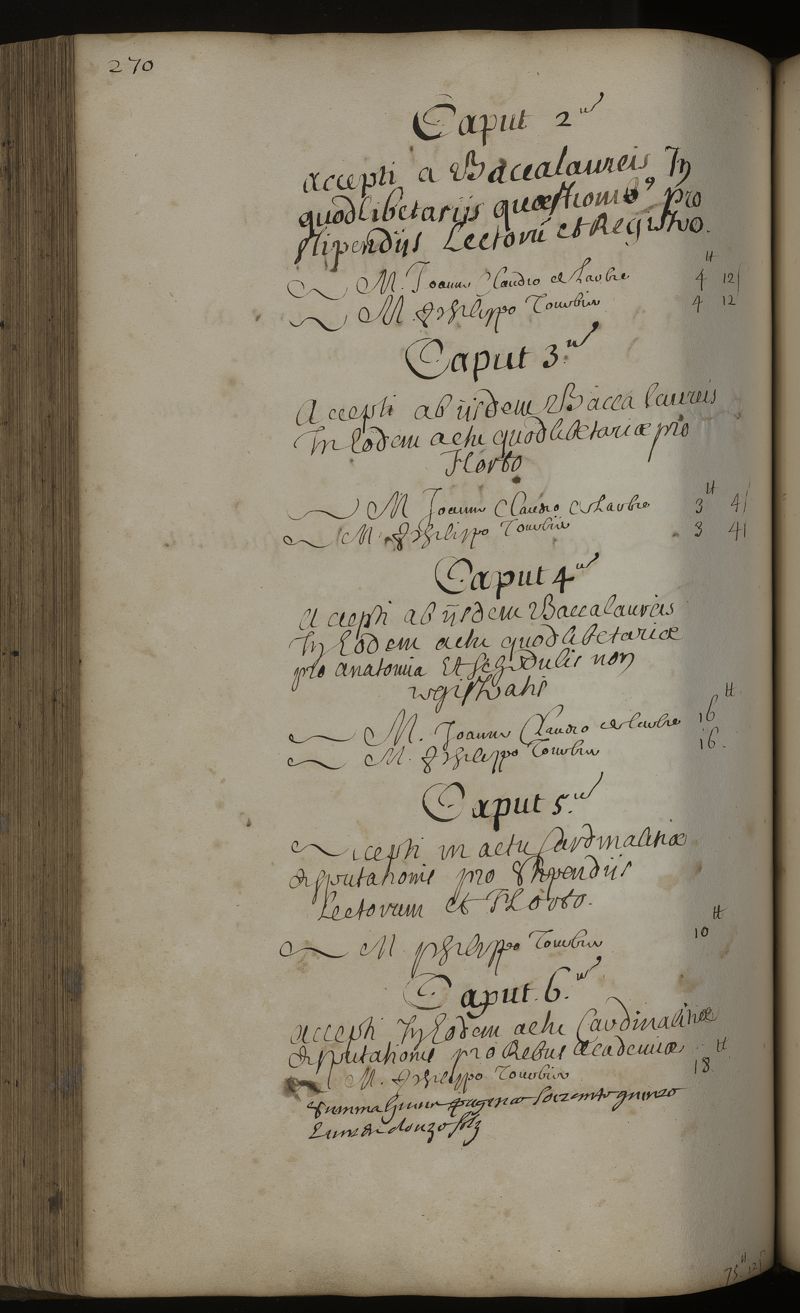 270
Caput 2um
Accepti a Baccalaureis In
quodlibetarijs quæstionib9 pro
stipendijs Lectorū et Registro.
tt
M. Joanne Claudio 4 12s
M Philippo Tourbin 4 12
Caput 3.um
Accepti ab iisdem Baccalaureis
In Eodem actu quodlibetariæ pro
Horto
tt
M Joanne Claudio 3 4s
M. Philippo Tourbin 3 4s
Caput 4um
Accepti ab iisdem Baccalaureis
In Eodem actu quodlibetariæ
pro anatomia Et schedulis non
registratis
tt
M. Joanne Claudio 16
M. Philippo Tourbin 16.
Caput 5.um
Accepti in actu Cardinalitiæ
disputationis pro Stipendijs
Lectorum et Horto.
tt
M philippo Tourbin 10
Caput. 6.um
Accepti In Eodem actu Cardinalitiæ
disputationis pro Rebus Academiæ tt
M. Philippo Tourbin 18
Summa huius paginæ soixente quinze
Liures douze solz
75tt 12s